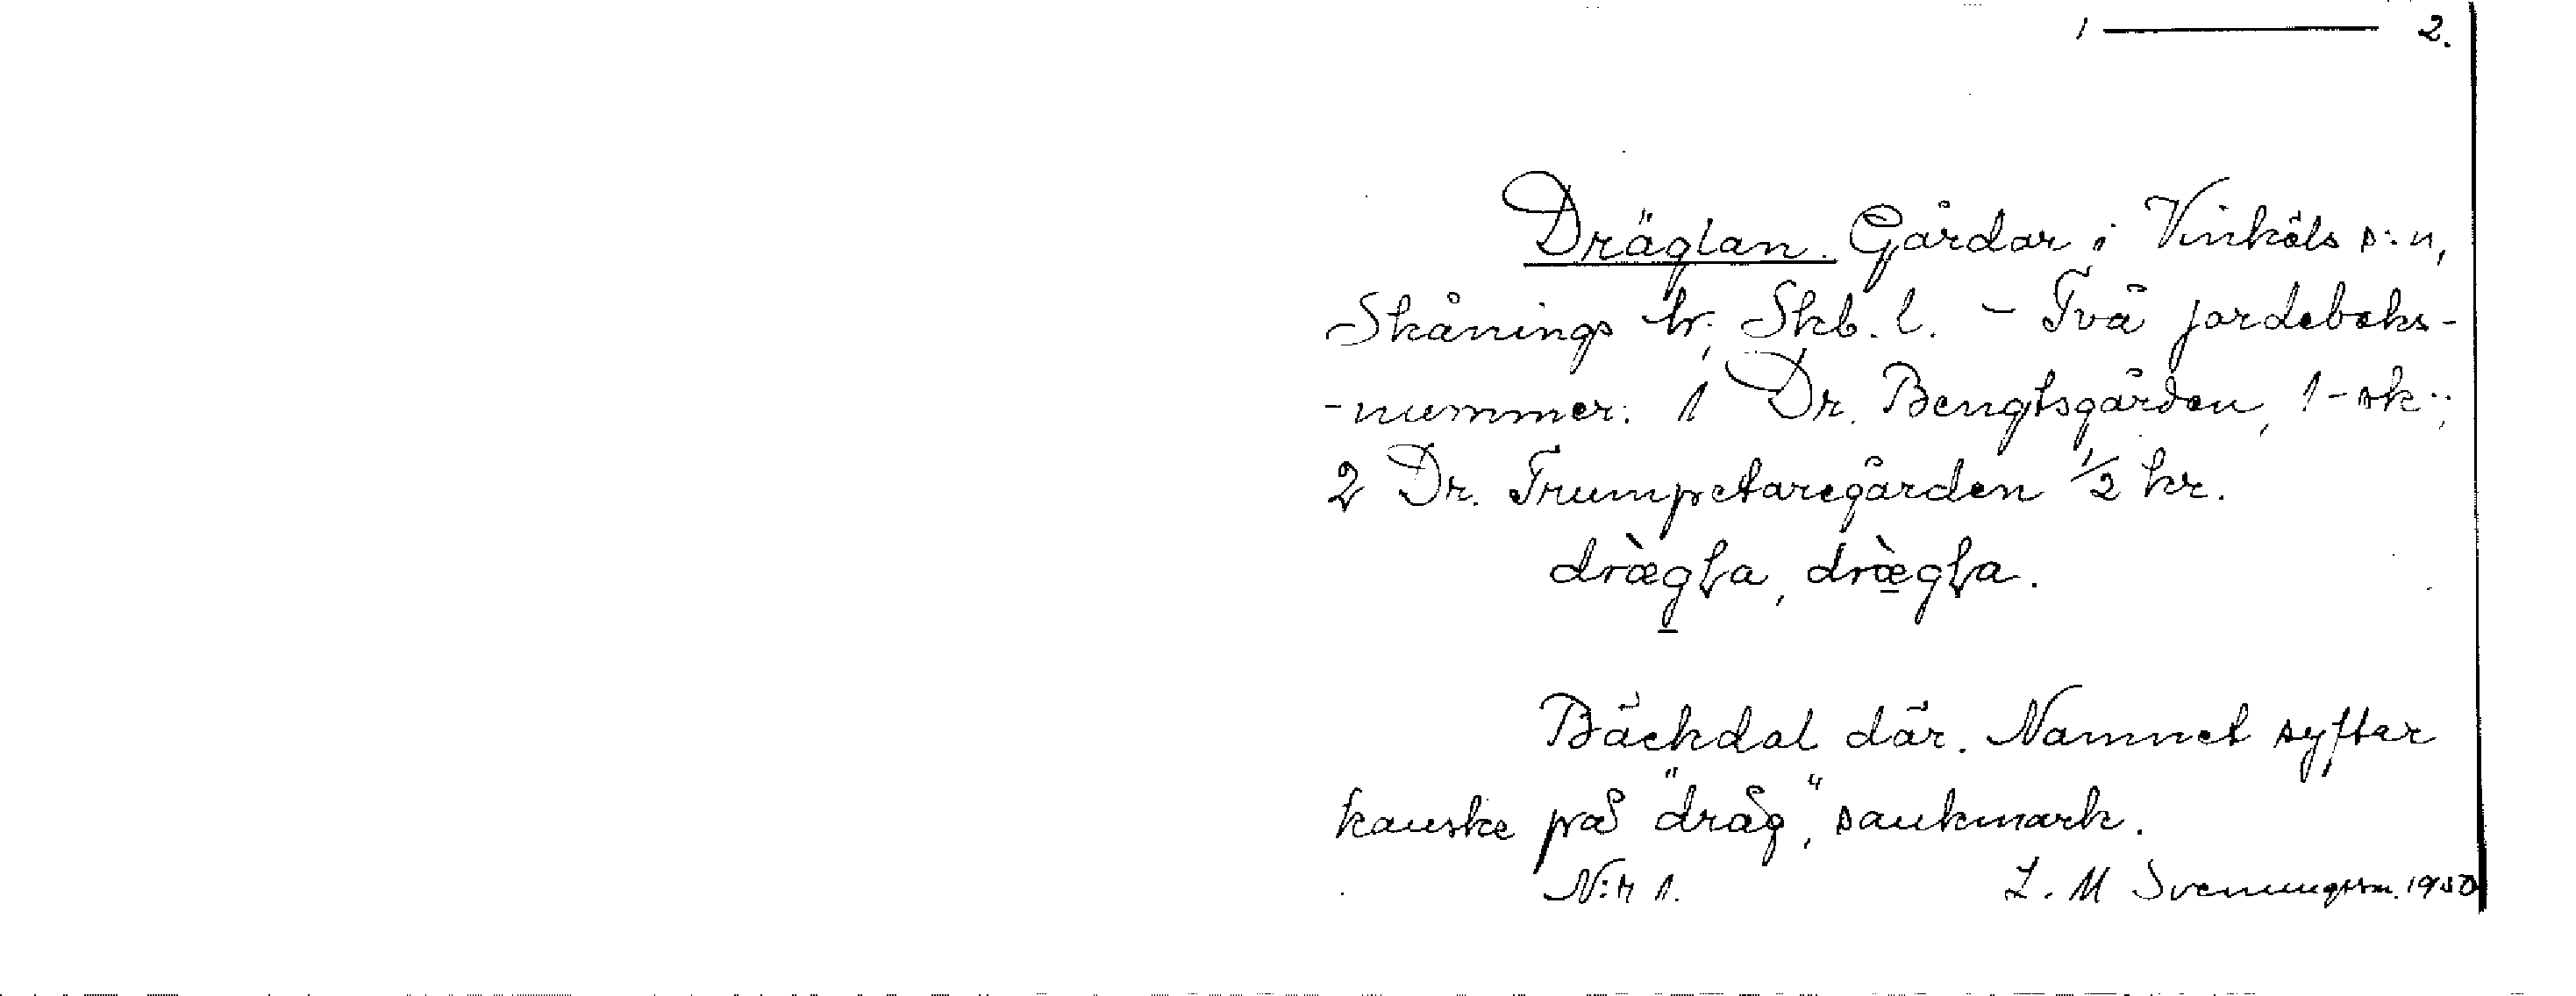 1 —— 2.
Dräglan. Gårdar i Vinköls s:n,
Skånings hr, Skb. l. – Två jordeboks-
-nummer: 1 Dr. Bengtsgården, 1 - sk.;
2 Dr. Trumpetaregården 1/2 kr.
dræ̀gɫa, dræ̀gɫa.
Bäckdal där. Namnet syftar
kanske på "dråg", sankmark.
N:r 1. L. M Svenungsson. 1950